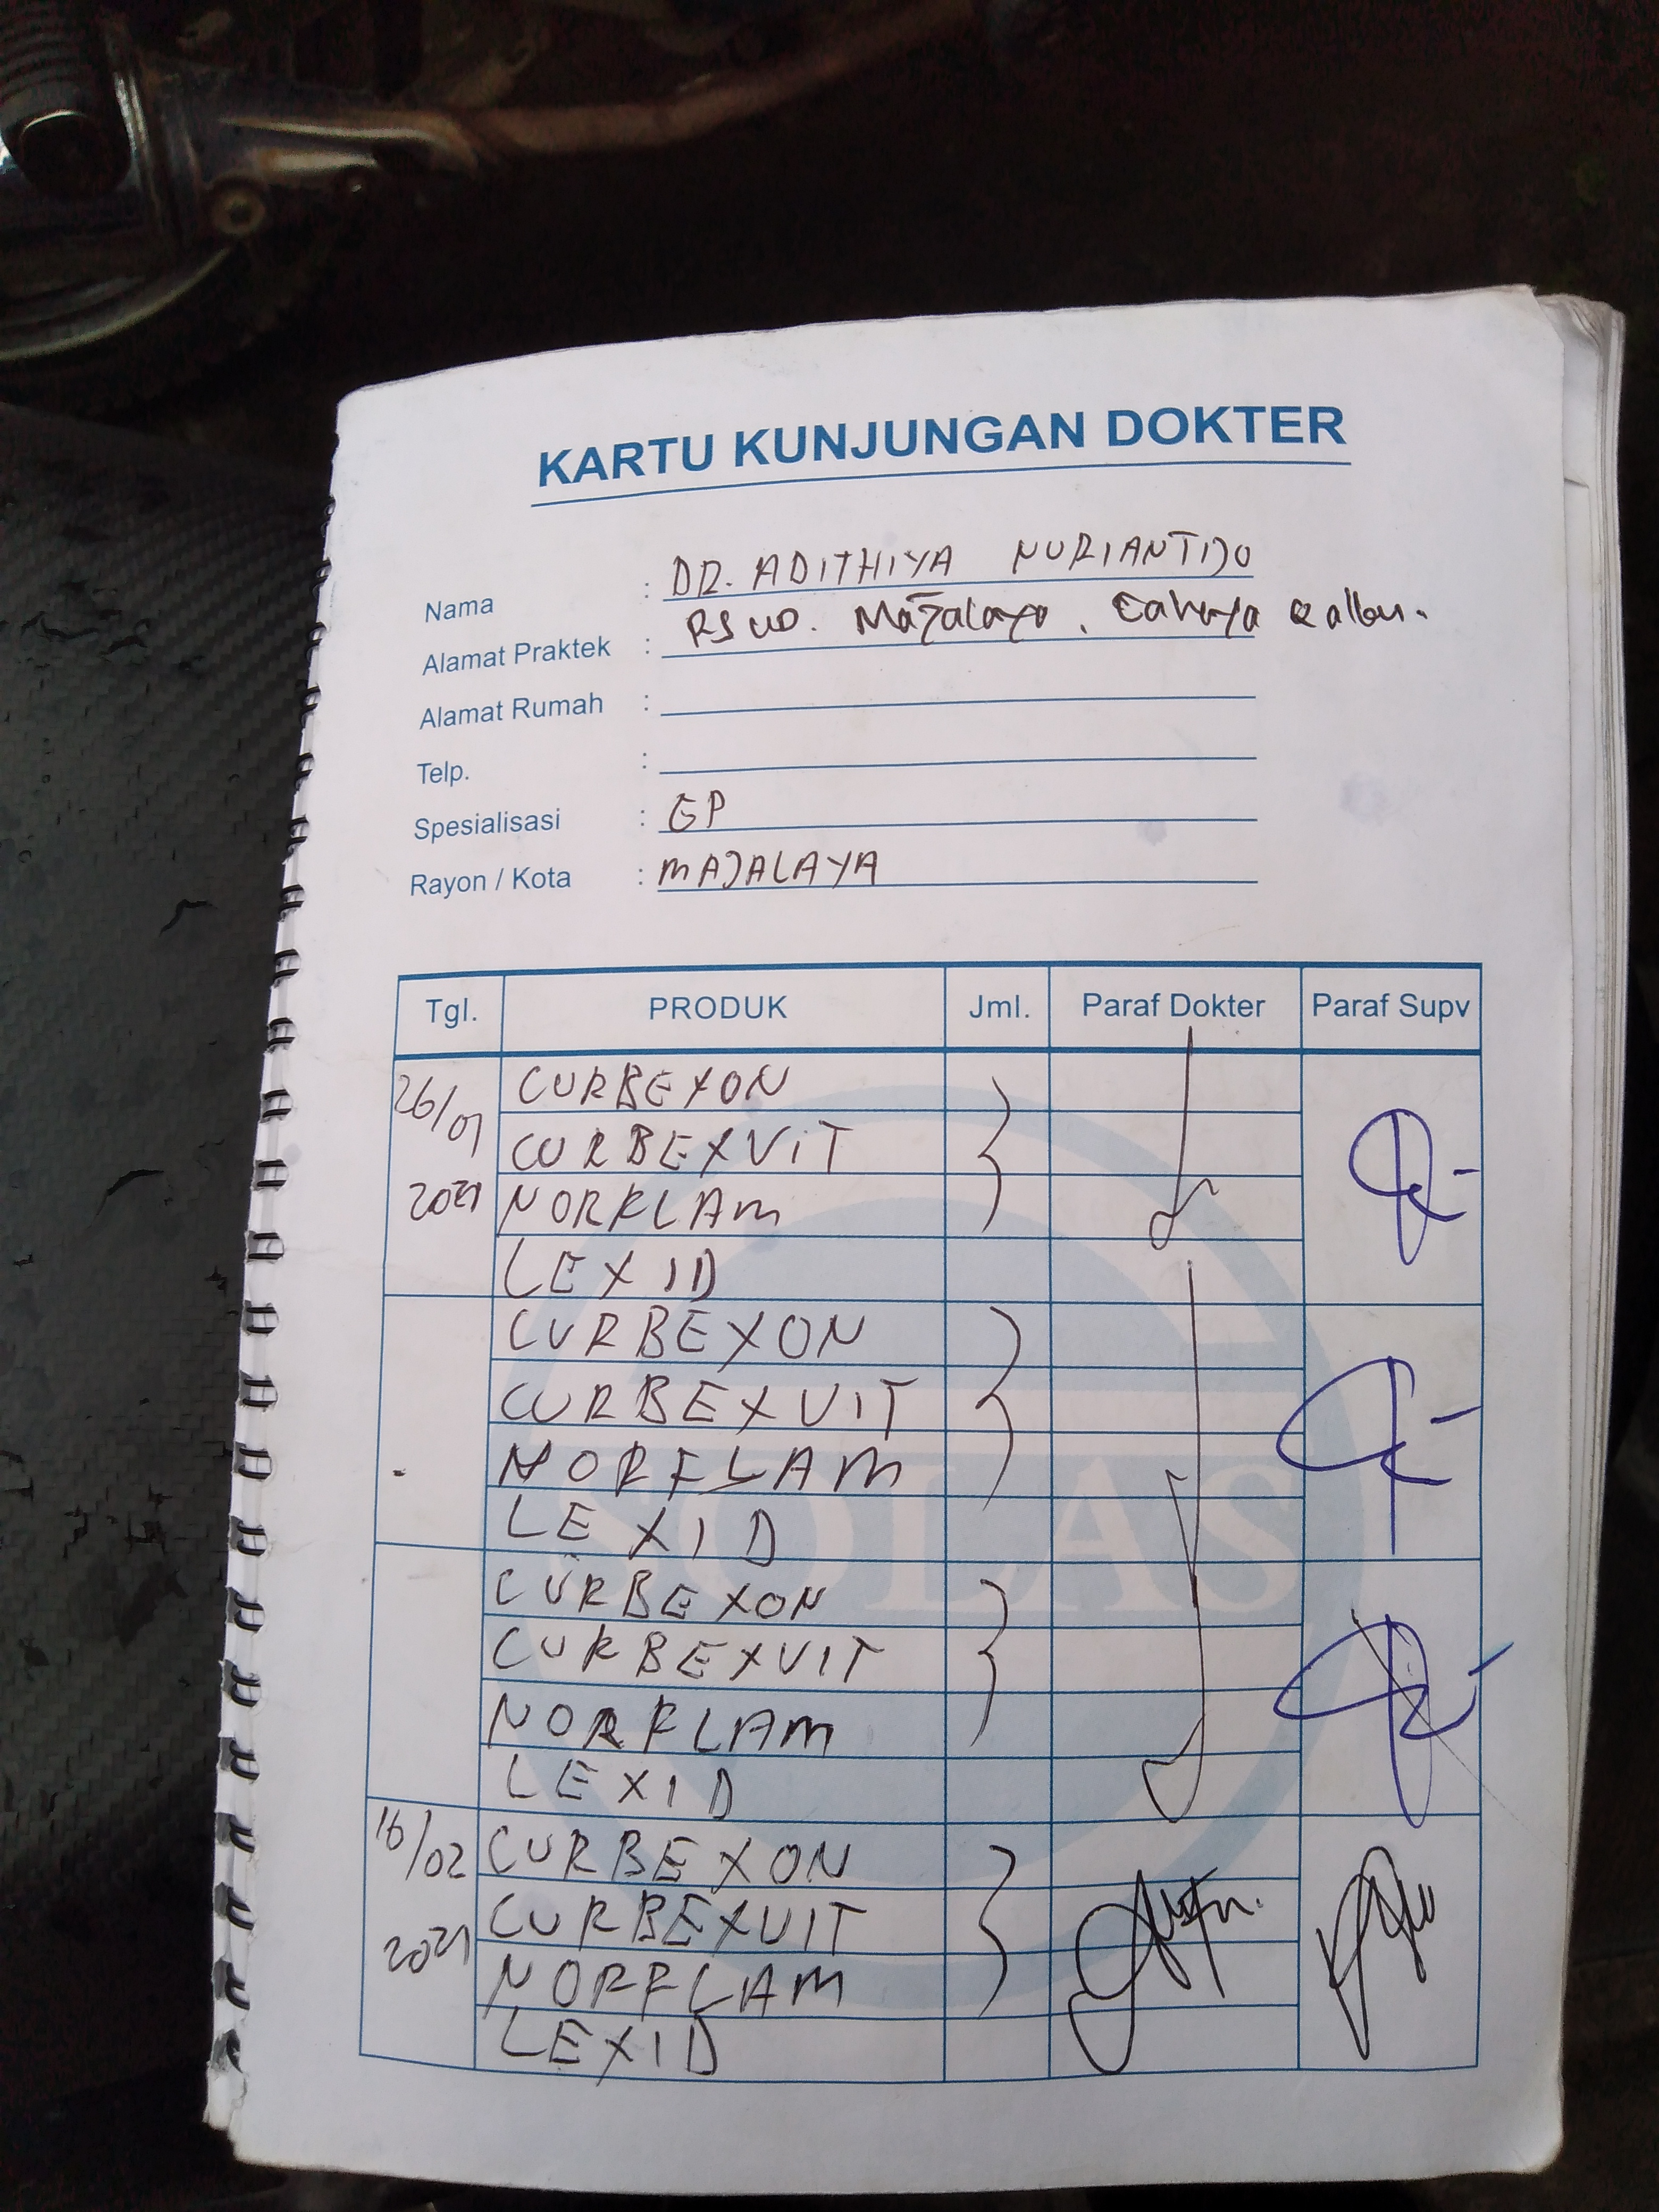 KARTU KUNJUNGAN DOKTER
Nama : DR. ADITHIYA NURIANTIJO
Alamat Praktek : RSUD. Majalaya, Cahaya Qalbu.
Alamat Rumah :
Telp. :
Spesialisasi : GP
Rayon / Kota : MAJALAYA
Tgl. PRODUK Jml. Paraf Dokter Paraf Supv
26/01 CURBEXON
CURBEXVIT
2021 NORFLAM
LEXID
CURBEXON
CURBEXVIT
NORFLAM
LEXID
CURBEXON
CURBEXVIT
NORFLAM
LEXID
16/02 CURBEXON
CURBEXVIT
2021 NORFLAM
LEXID
OLAS